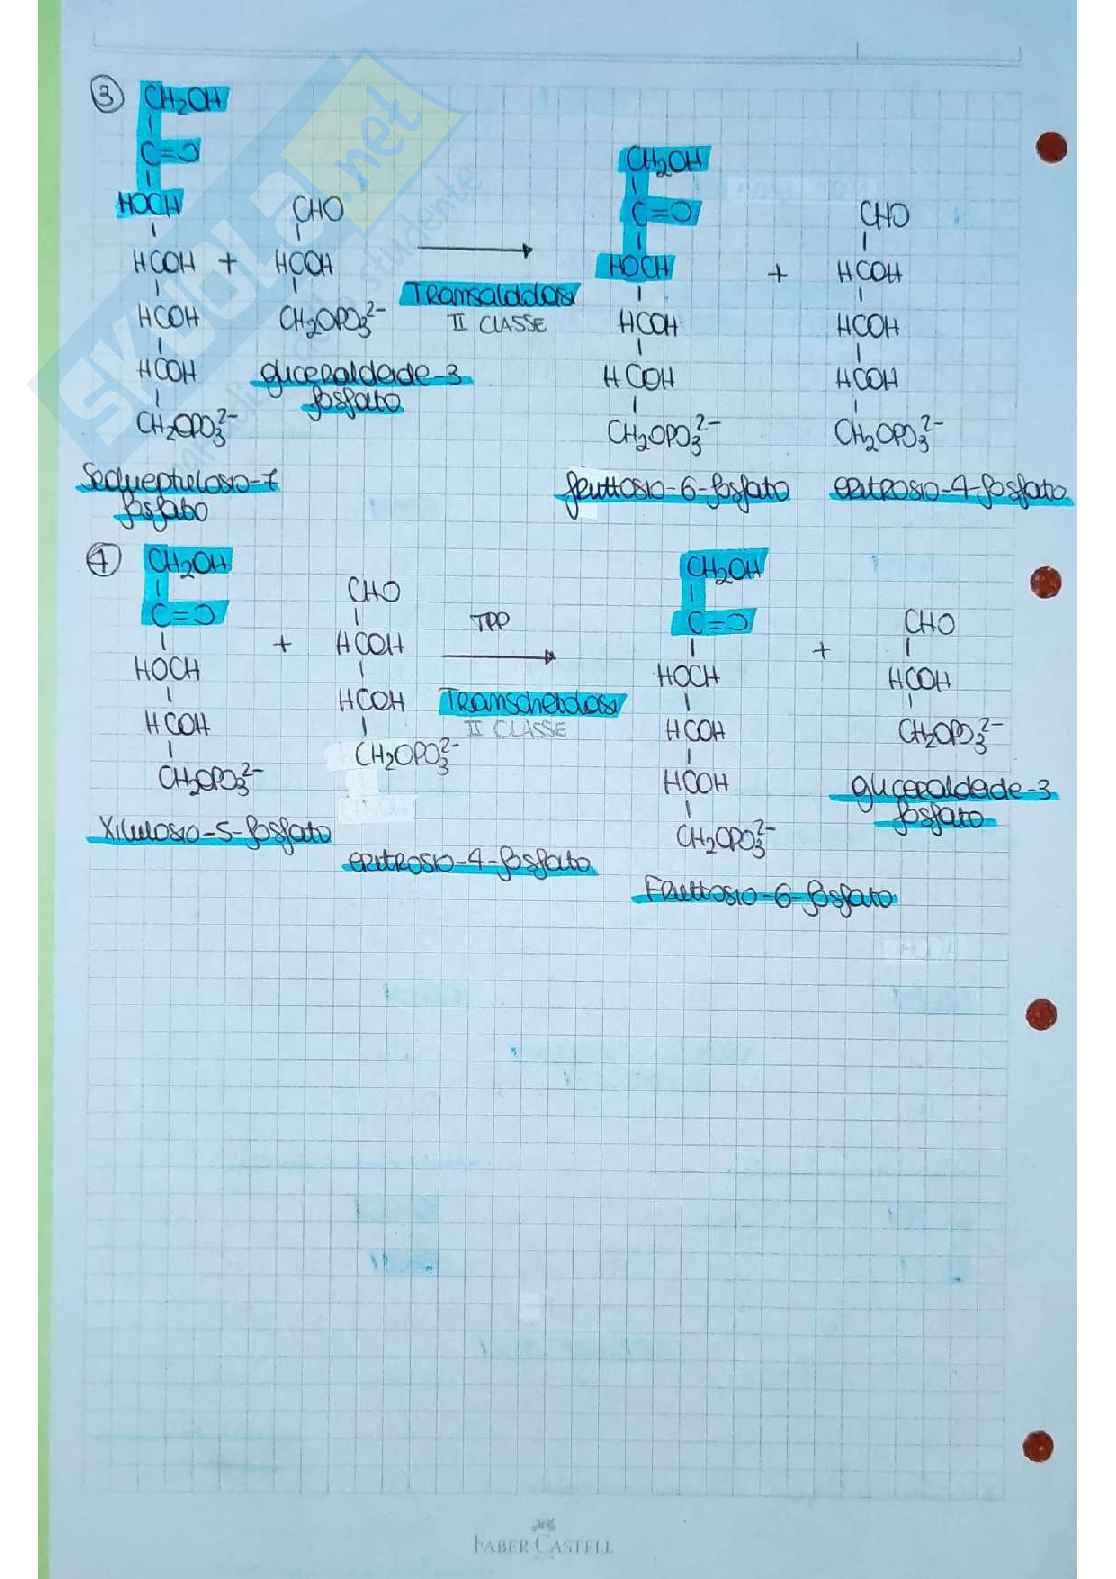 3
CH2OH
C=O
HOCH
HCOH
HCOH
HCOH
CH2OPO3 2-
Sedueptulosio-7
fosfato
+
CHO
HCOH
CH2OPO3 2-
gliceraldeide-3
fosfato
Transaldolasi
II CLASSE
CH2OH
C=O
HOCH
HCOH
HCOH
CH2OPO3 2-
fruttosio-6-fosfato
+
CHO
HCOH
HCOH
HCOH
CH2OPO3 2-
eritrosio-4-fosfato
4
CH2OH
C=O
HOCH
HCOH
CH2OPO3 2-
Xilulosio-5-fosfato
+
CHO
HCOH
HCOH
CH2OPO3 2-
eritrosio-4-fosfato
TPP
Transchetolasi
II CLASSE
CH2OH
C=O
HOCH
HCOH
HCOH
CH2OPO3 2-
Fruttosio-6-fosfato
+
CHO
HCOH
CH2OPO3 2-
gliceraldeide-3
fosfato
skuola.net
FABER CASTELL